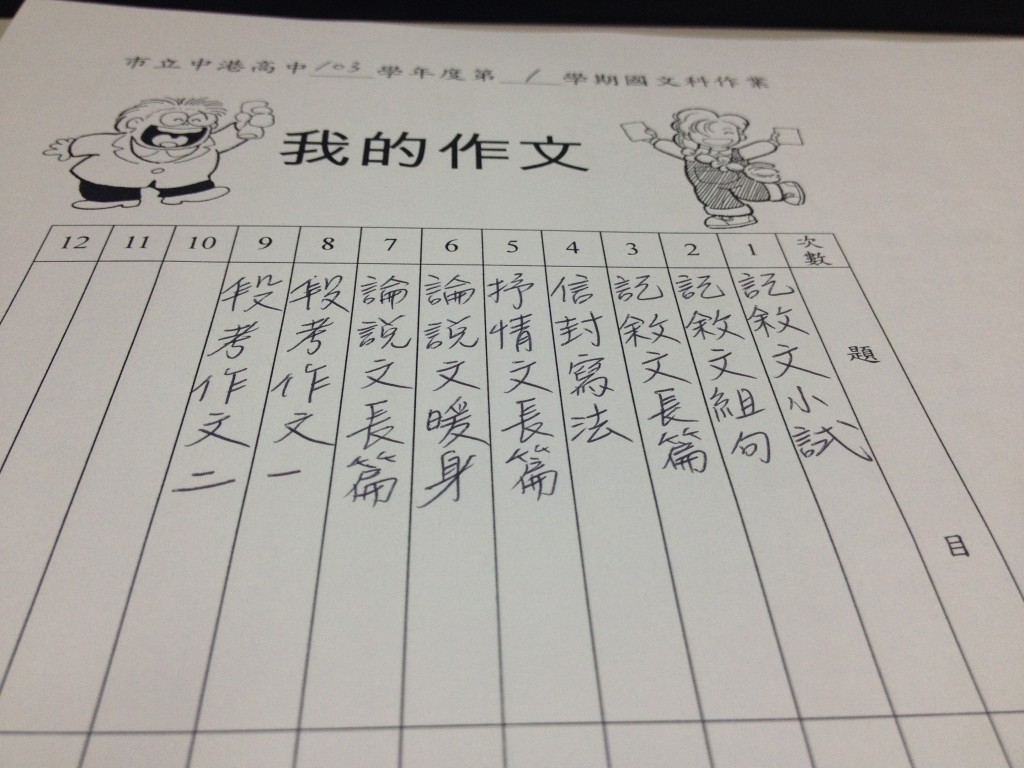 市立中港高中103學年度第1學期國文科作業
我的作文
次數
題目
1
記敘文小試
2
記敘文組句
3
記敘文長篇
4
信封寫法
5
抒情文長篇
6
論說文暖身
7
論說文長篇
8
段考作文一
9
段考作文二
10
11
12